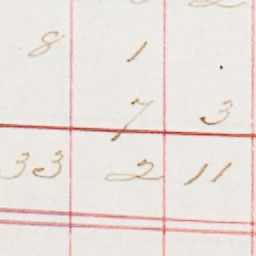 8 1
7 3
33 2 11